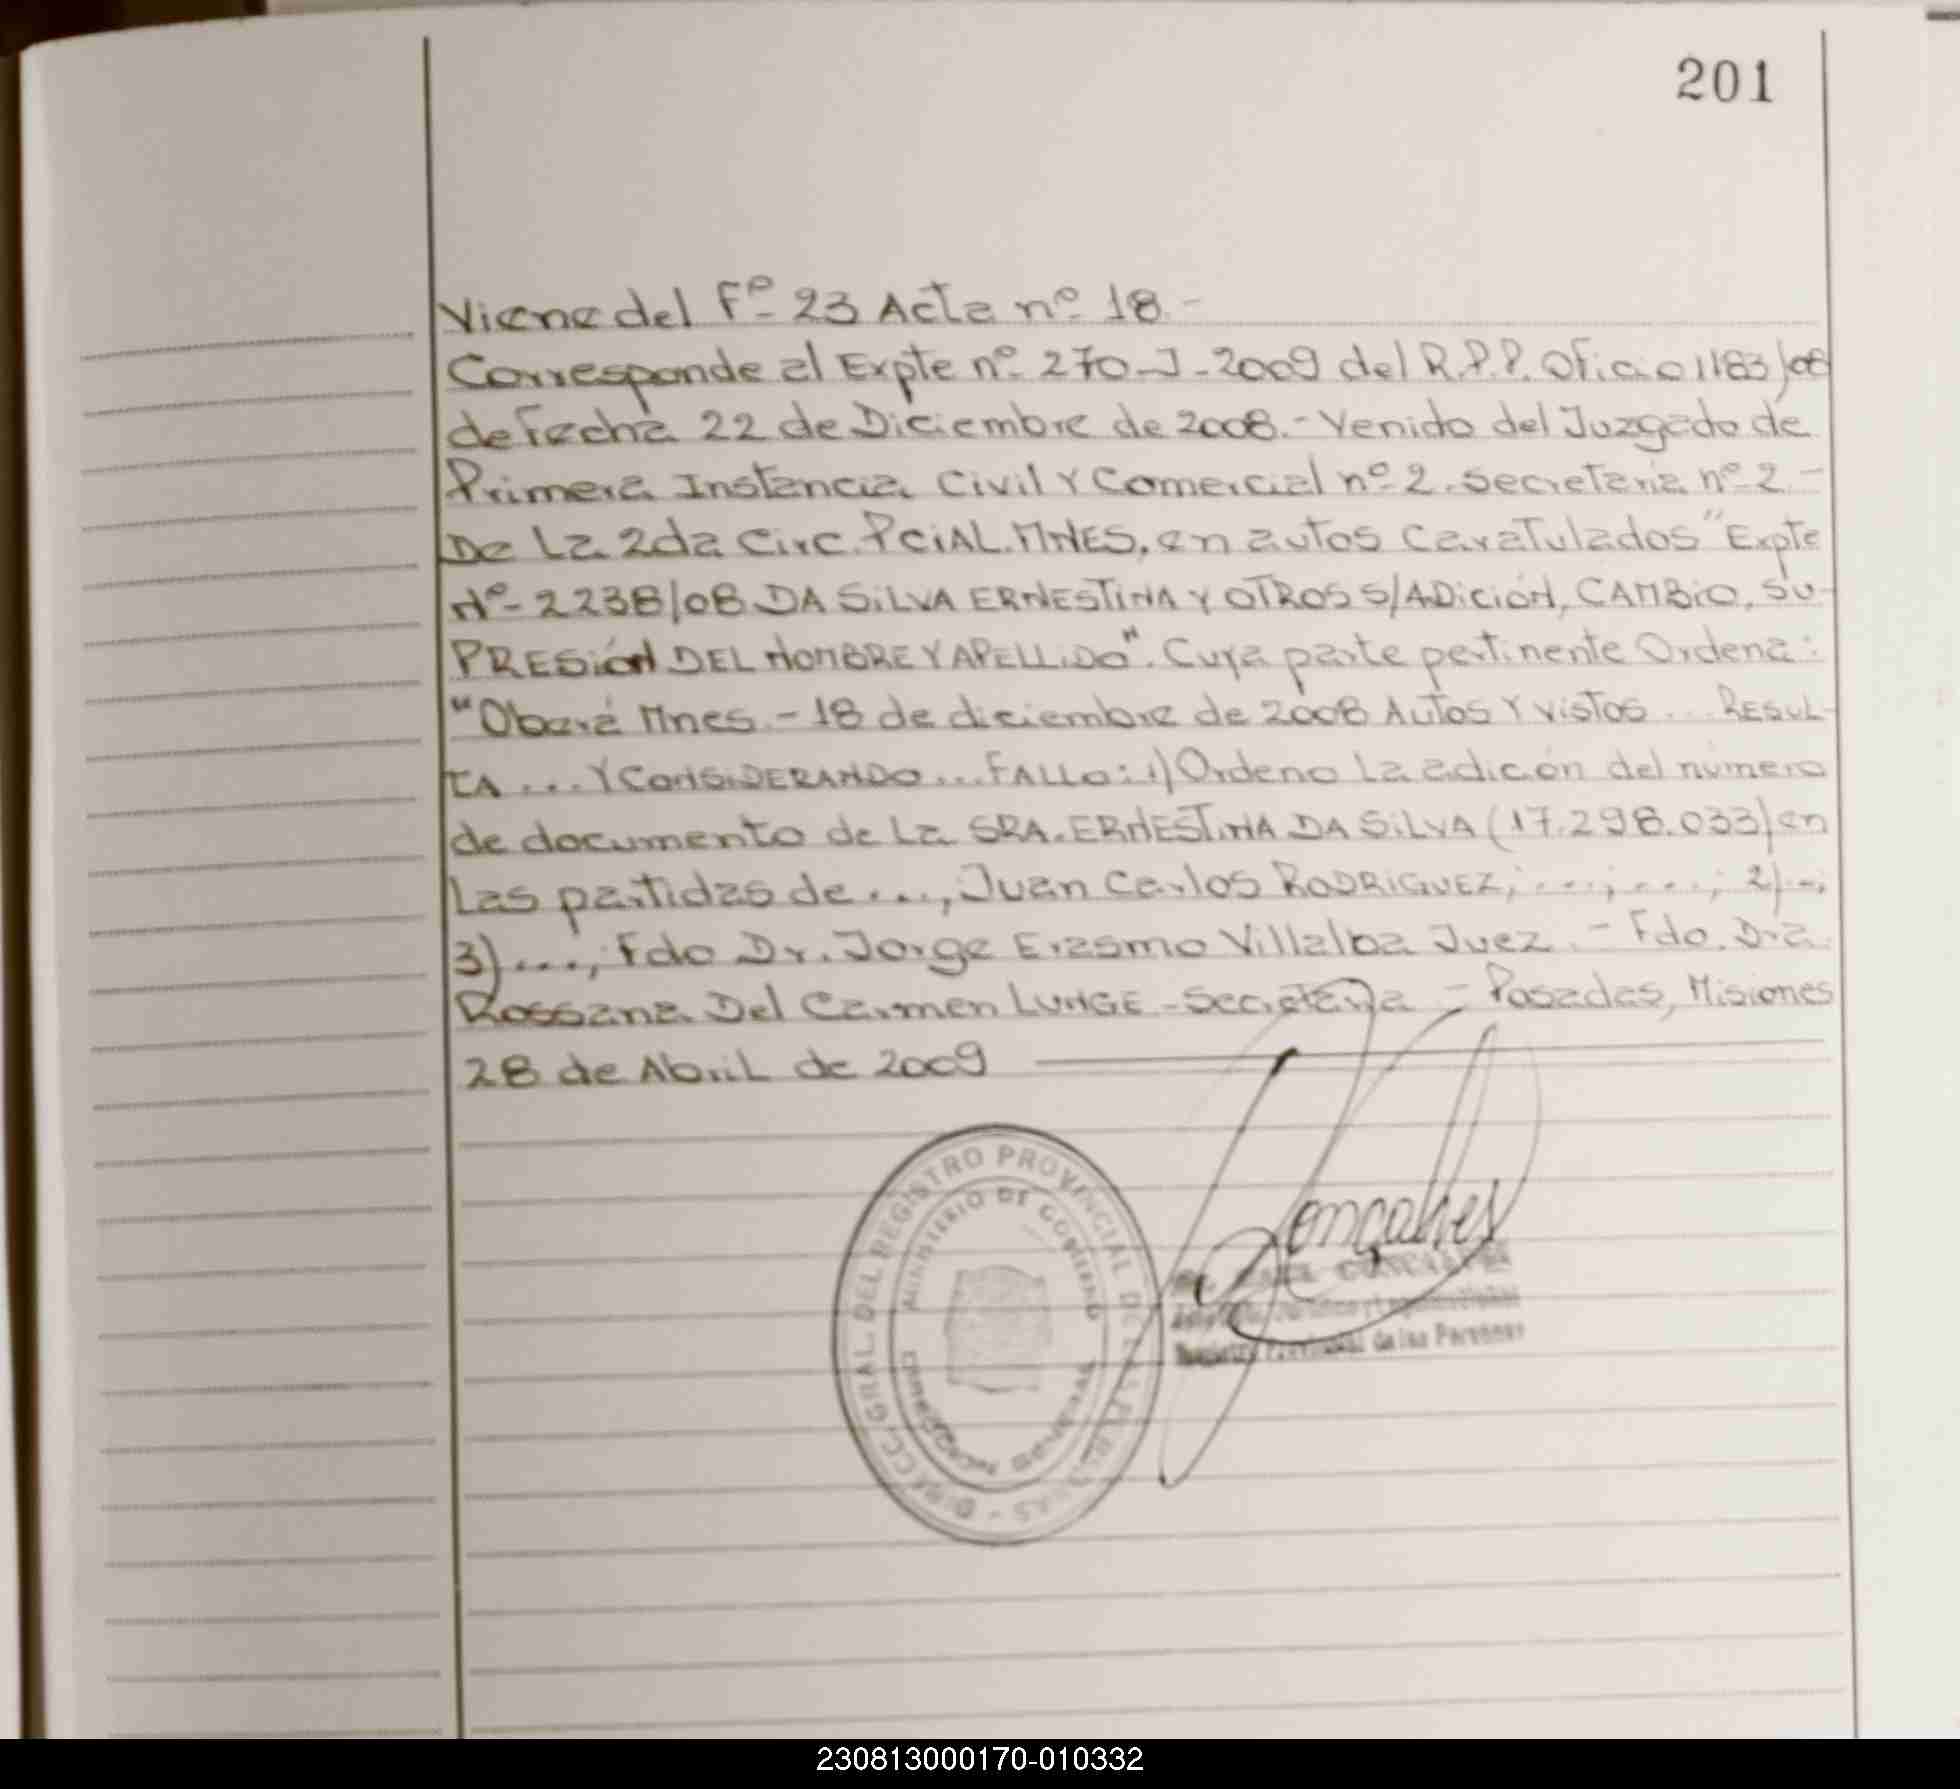 201
Viene del Fº 23 Acta nº 18.-
Corresponde al Expte nº 270-J-2009 del R.P.P. Oficio 1183/08
de Fecha 22 de Diciembre de 2008.- Venido del Juzgado de
Primera Instancia Civil Y Comercial nº 2. Secretaria nº 2.-
De La 2da Circ. PCiAL. MNES, en autos Caratulados "Expte
Nº- 2238/08 DA SiLVA ERNESTINA Y OTROS S/ADiCióN, CAMBiO, SU-
PRESióN DEL NOMBRE Y APELLiDO". Cuya parte pertinente Ordena:
"Oberá Mnes.-18 de diciembre de 2008 Autos Y Vistos ... RESUL-
TA .... Y CONSiDERANDO ... FALLO: 1) Ordeno La adición del número
de documento de La SRA. ERNESTINA DA SiLVA (17.298.033) en
Las partidas de ..., Juan Carlos RODRiGUEZ, ...; ...; 2) ..,
3) ..., Fdo Dr. Jorge Erasmo Villalba Juez.- Fdo. Dra.
Rossana Del Carmen LUNGE - Secretaria - Posadas, Misiones
28 de Abril de 2009
DIRECC. GRAL. DEL REGISTRO PROVINCIAL DE LAS PERSONAS -
MINISTERIO DE GOBIERNO
DIRECCION GENERAL
Gonçalves
GONCALVES
Registro Provincial de las Personas
230813000170-010332